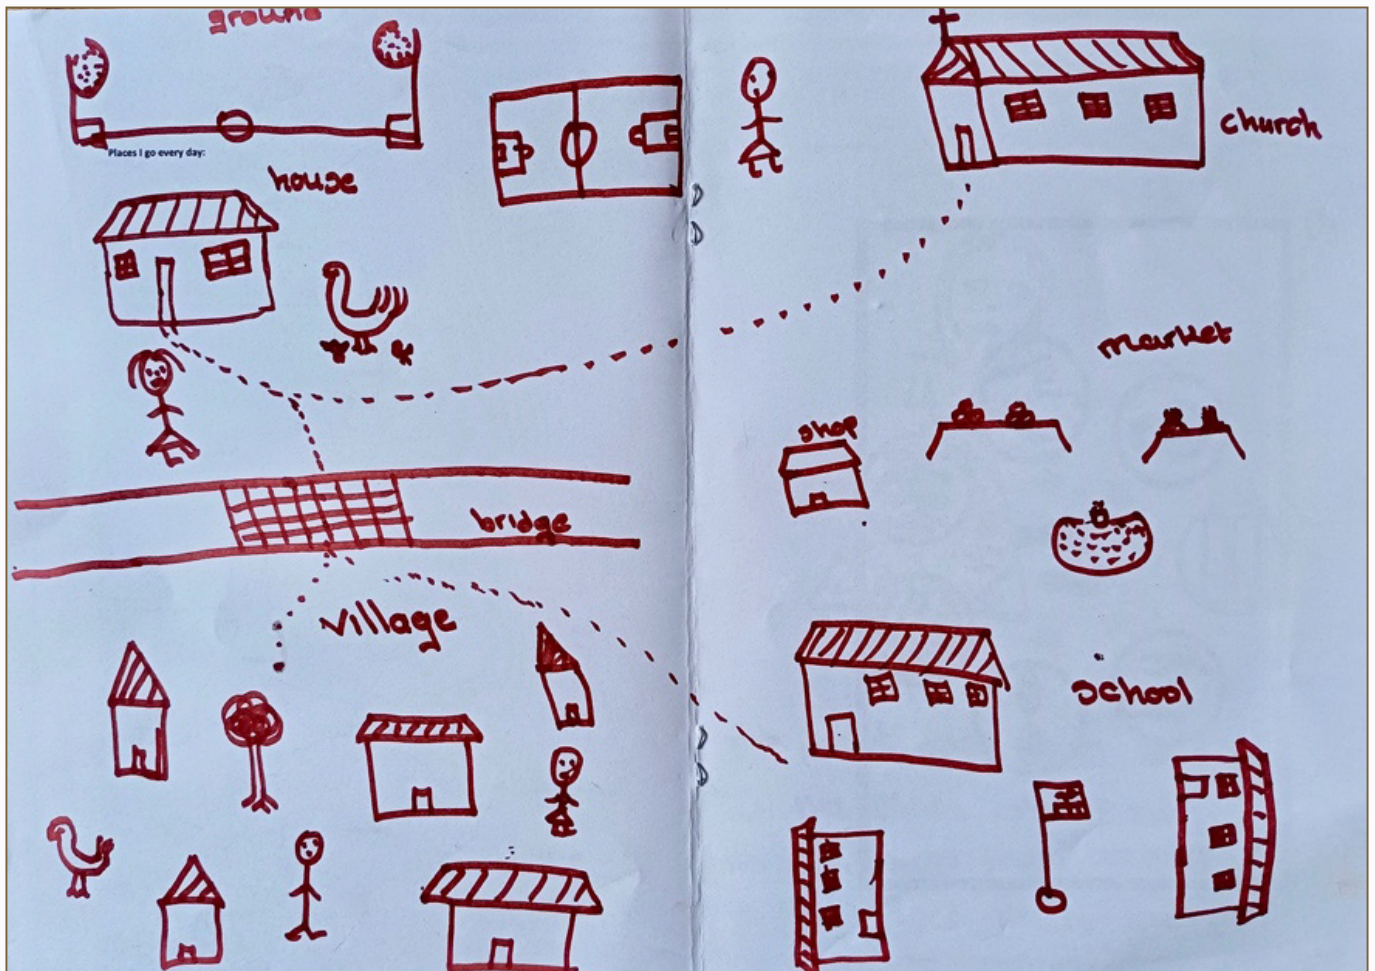 ground
Places I go every day:
house
church
market
shop
bridge
village
school